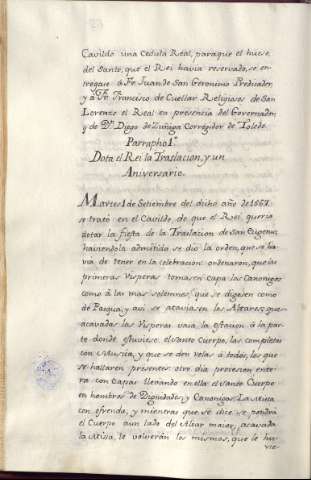 Cavildo una Cedula Real, paraque el huese
del Santo, que el Rei havia reservado, se en-
tregue à Fr. Juan de San Geronimo Predicador,
y à Fr. Francisco de Cuellar Religiosos de San
Lorenzo el Real en presencia del Governador,
y de Dn. Diego de Zuñiga Corregidor de Toledo.
Parrapho 1º
Dota el Rei la Traslacion, y un
Aniversario.
Martes 1 de Setiembre del dicho año de 1567.
se trató en el Cavildo, de que el Rei, queria
dotar la fiesta de la Traslacion de San Eugenio,
haviendola admitido, se dió la orden, que se ha-
via de tener en la celebracion: ordenaron, que las
primeras Visperas tomasen Capa las Canonigos
como à las mas solemnes, que se digesen como
de Pasqua, y asi se atavíasen las Altares; que
acavadas las Visperas vaia, la estacion à la par-
te donde estuviere el Santo Cuerpo, las completas
con Musica, y que se den velas à todos, los que
se hallaren presentes: otro dia procesion ente-
ra con Capas llevando en ella el Santo Cuerpo
en hombros de Dignidades, y Canonigos. La Misa
con ofrenda, y mientras que se dice se pondrá
el Cuerpo aun lado del Altar maior, acavada
la Misa, le volverán los mismos, que le hu-
vie-